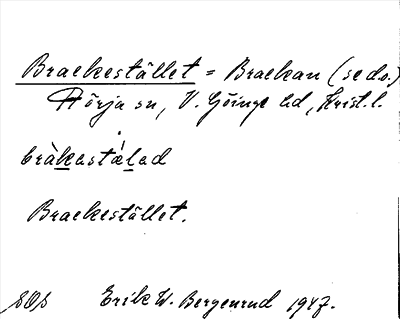 Brackestället = Brackan (se d.o.)
Hörja sn, V. Göinge hd, Krist. l.
bràkastǽlad
Brackestället.
Erik W. Bergenrud 1947.